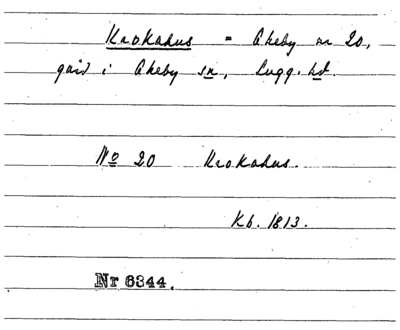 Krokahus = Åkeby nr 20,
gård i Åkeby sn, Lugg. hd.
No 20 Krokahus.
Kb. 1813.
Nr 6344.